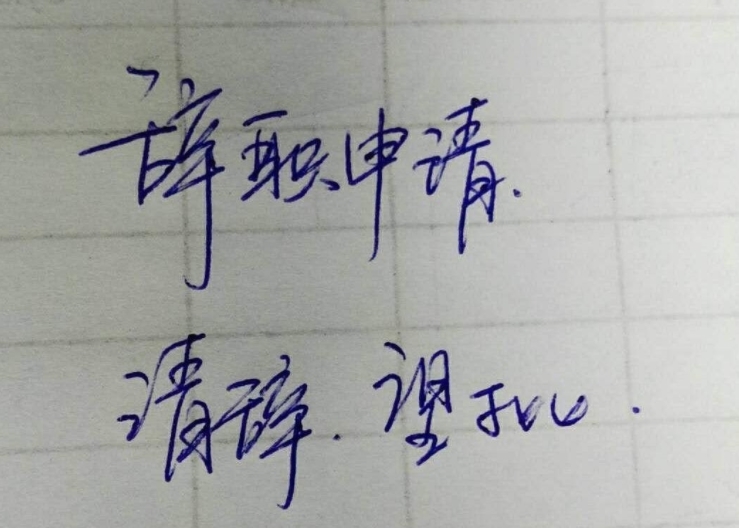 辞职申请.
请辞.望批.